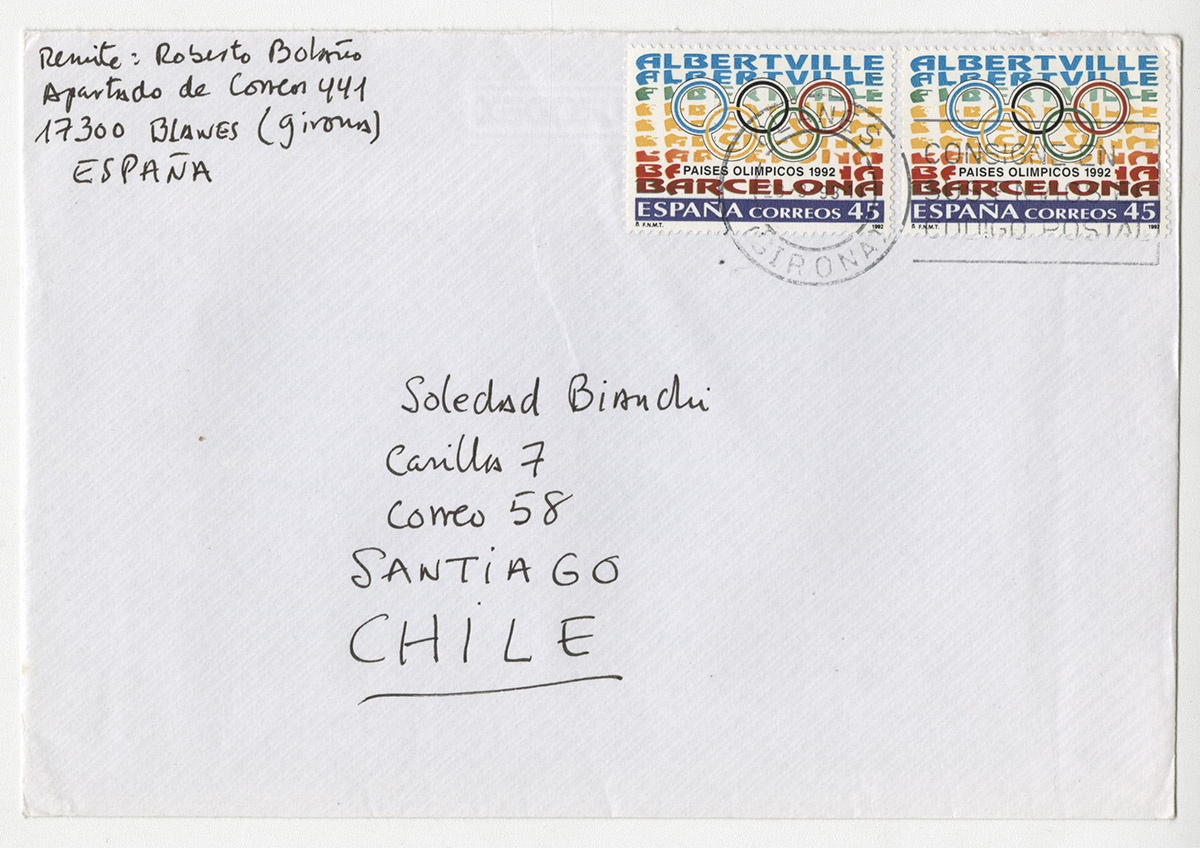 Remite: Roberto Bolaño
Apartado de Correos 441
17300 BLANES (Girona)
ESPAÑA
ALBERTVILLE
ALBERTVILLE
PAISES OLIMPICOS 1992
BARCELONA
ESPAÑA CORREOS 45
F.N.M.T. 1992
ALBERTVILLE
ALBERTVILLE
PAISES OLIMPICOS 1992
BARCELONA
ESPAÑA CORREOS 45
F.N.M.T. 1992
(GIRONA)
CONSIGNE EN
SUS ENVIOS
CODIGO POSTAL
Soledad Bianchi
Casilla 7
Correo 58
SANTIAGO
CHILE